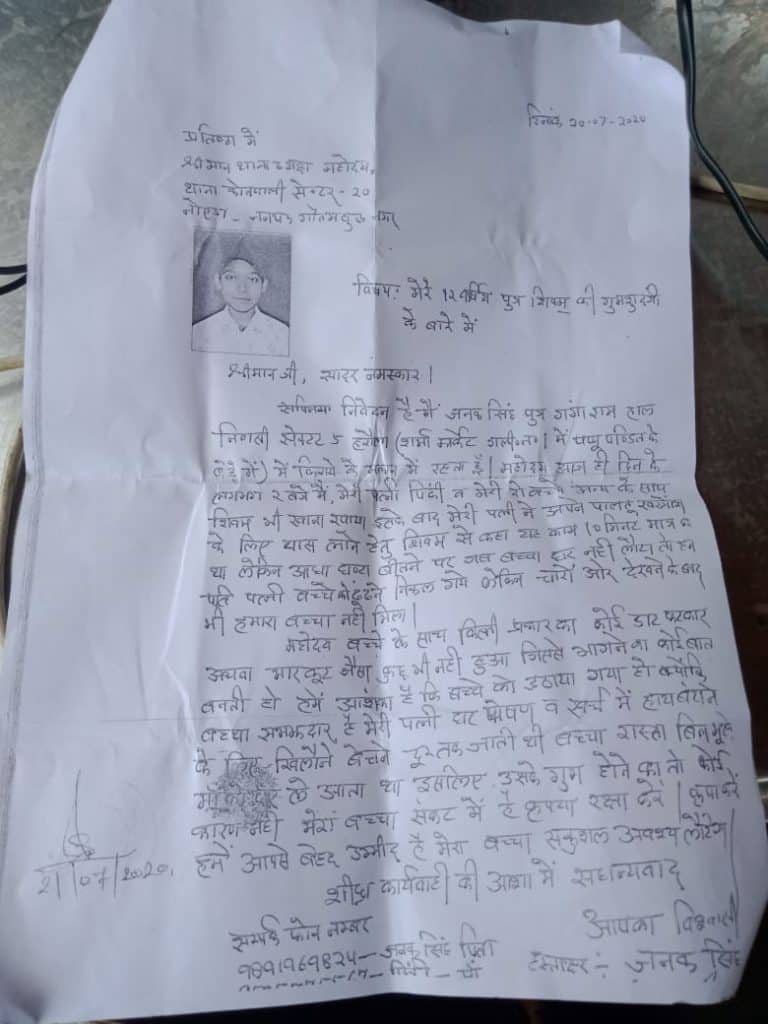 दिनांक 20-07-2020
प्रतिष्ठा में
श्रीमान थानाध्यक्ष महोदय,
थाना कोतवाली सेक्टर - 20
नोएडा - जनपद गौतमबुद्ध नगर
विषय: मेरे 12 वर्षीय पुत्र शिवम् की गुमशुदगी
के बारे में
श्रीमान जी, सादर नमस्कार।
सविनय निवेदन है मैं जनक सिंह पुत्र गंगा राम हाल
निवासी सेक्टर 5 हरौला (शर्मा मार्केट गली नं० 1 में पप्पु पण्डित के
में) में किराये के मकान में रहता हूँ। महोदय आज ही दिन के
लगभग 2 बजे मैं, मेरी पत्नी पिंकी व मेरे दो बच्चे अन्य के साथ
शिवम् भी खाना खाया इसके बाद मेरी पत्नी ने अपने पालतू खरगोश
के लिए घास लाने हेतु शिवम् से कहा यह काम 10 मिनट मात्र का
था लेकिन आधा घण्टा बीतने पर जब बच्चा घर नही लौटा तो हम
पति पत्नी बच्चे को ढूंढने निकल गये लेकिन चारों ओर देखने के बाद
भी हमारा बच्चा नही मिला।
महोदय बच्चे के साथ किसी प्रकार का कोई डाट फटकार
अथवा मारकूट जैसा कुछ भी नही हुआ जिससे भागने का कोई बात
बनती हो हमें आशंका है कि बच्चे को उठाया गया हो क्योंकि
बच्चा समझदार है मेरी पत्नी घर पोषण व खर्च में हाथ बटाने
के लिए खिलौने बेचने दूर तक जाती थी बच्चा रास्ता बिन भूले
माँ को घर ले आता था इसलिए उसके गुम होने का तो कोई
कारण नही मेरा बच्चा संकट में है कृपया रक्षा करें। कृपा करें
हमें आपसे बेहद उम्मीद है मेरा बच्चा सकुशल अवश्य लौटेगा।
शीघ्र कार्यवाही की आशा में सधन्यवाद
21/07/2020,
आपका विश्वासी
सम्पर्क फोन नम्बर
9891969824 - जनक सिंह पिता
पिंकी - माँ
हस्ताक्षर :- जनक सिंह